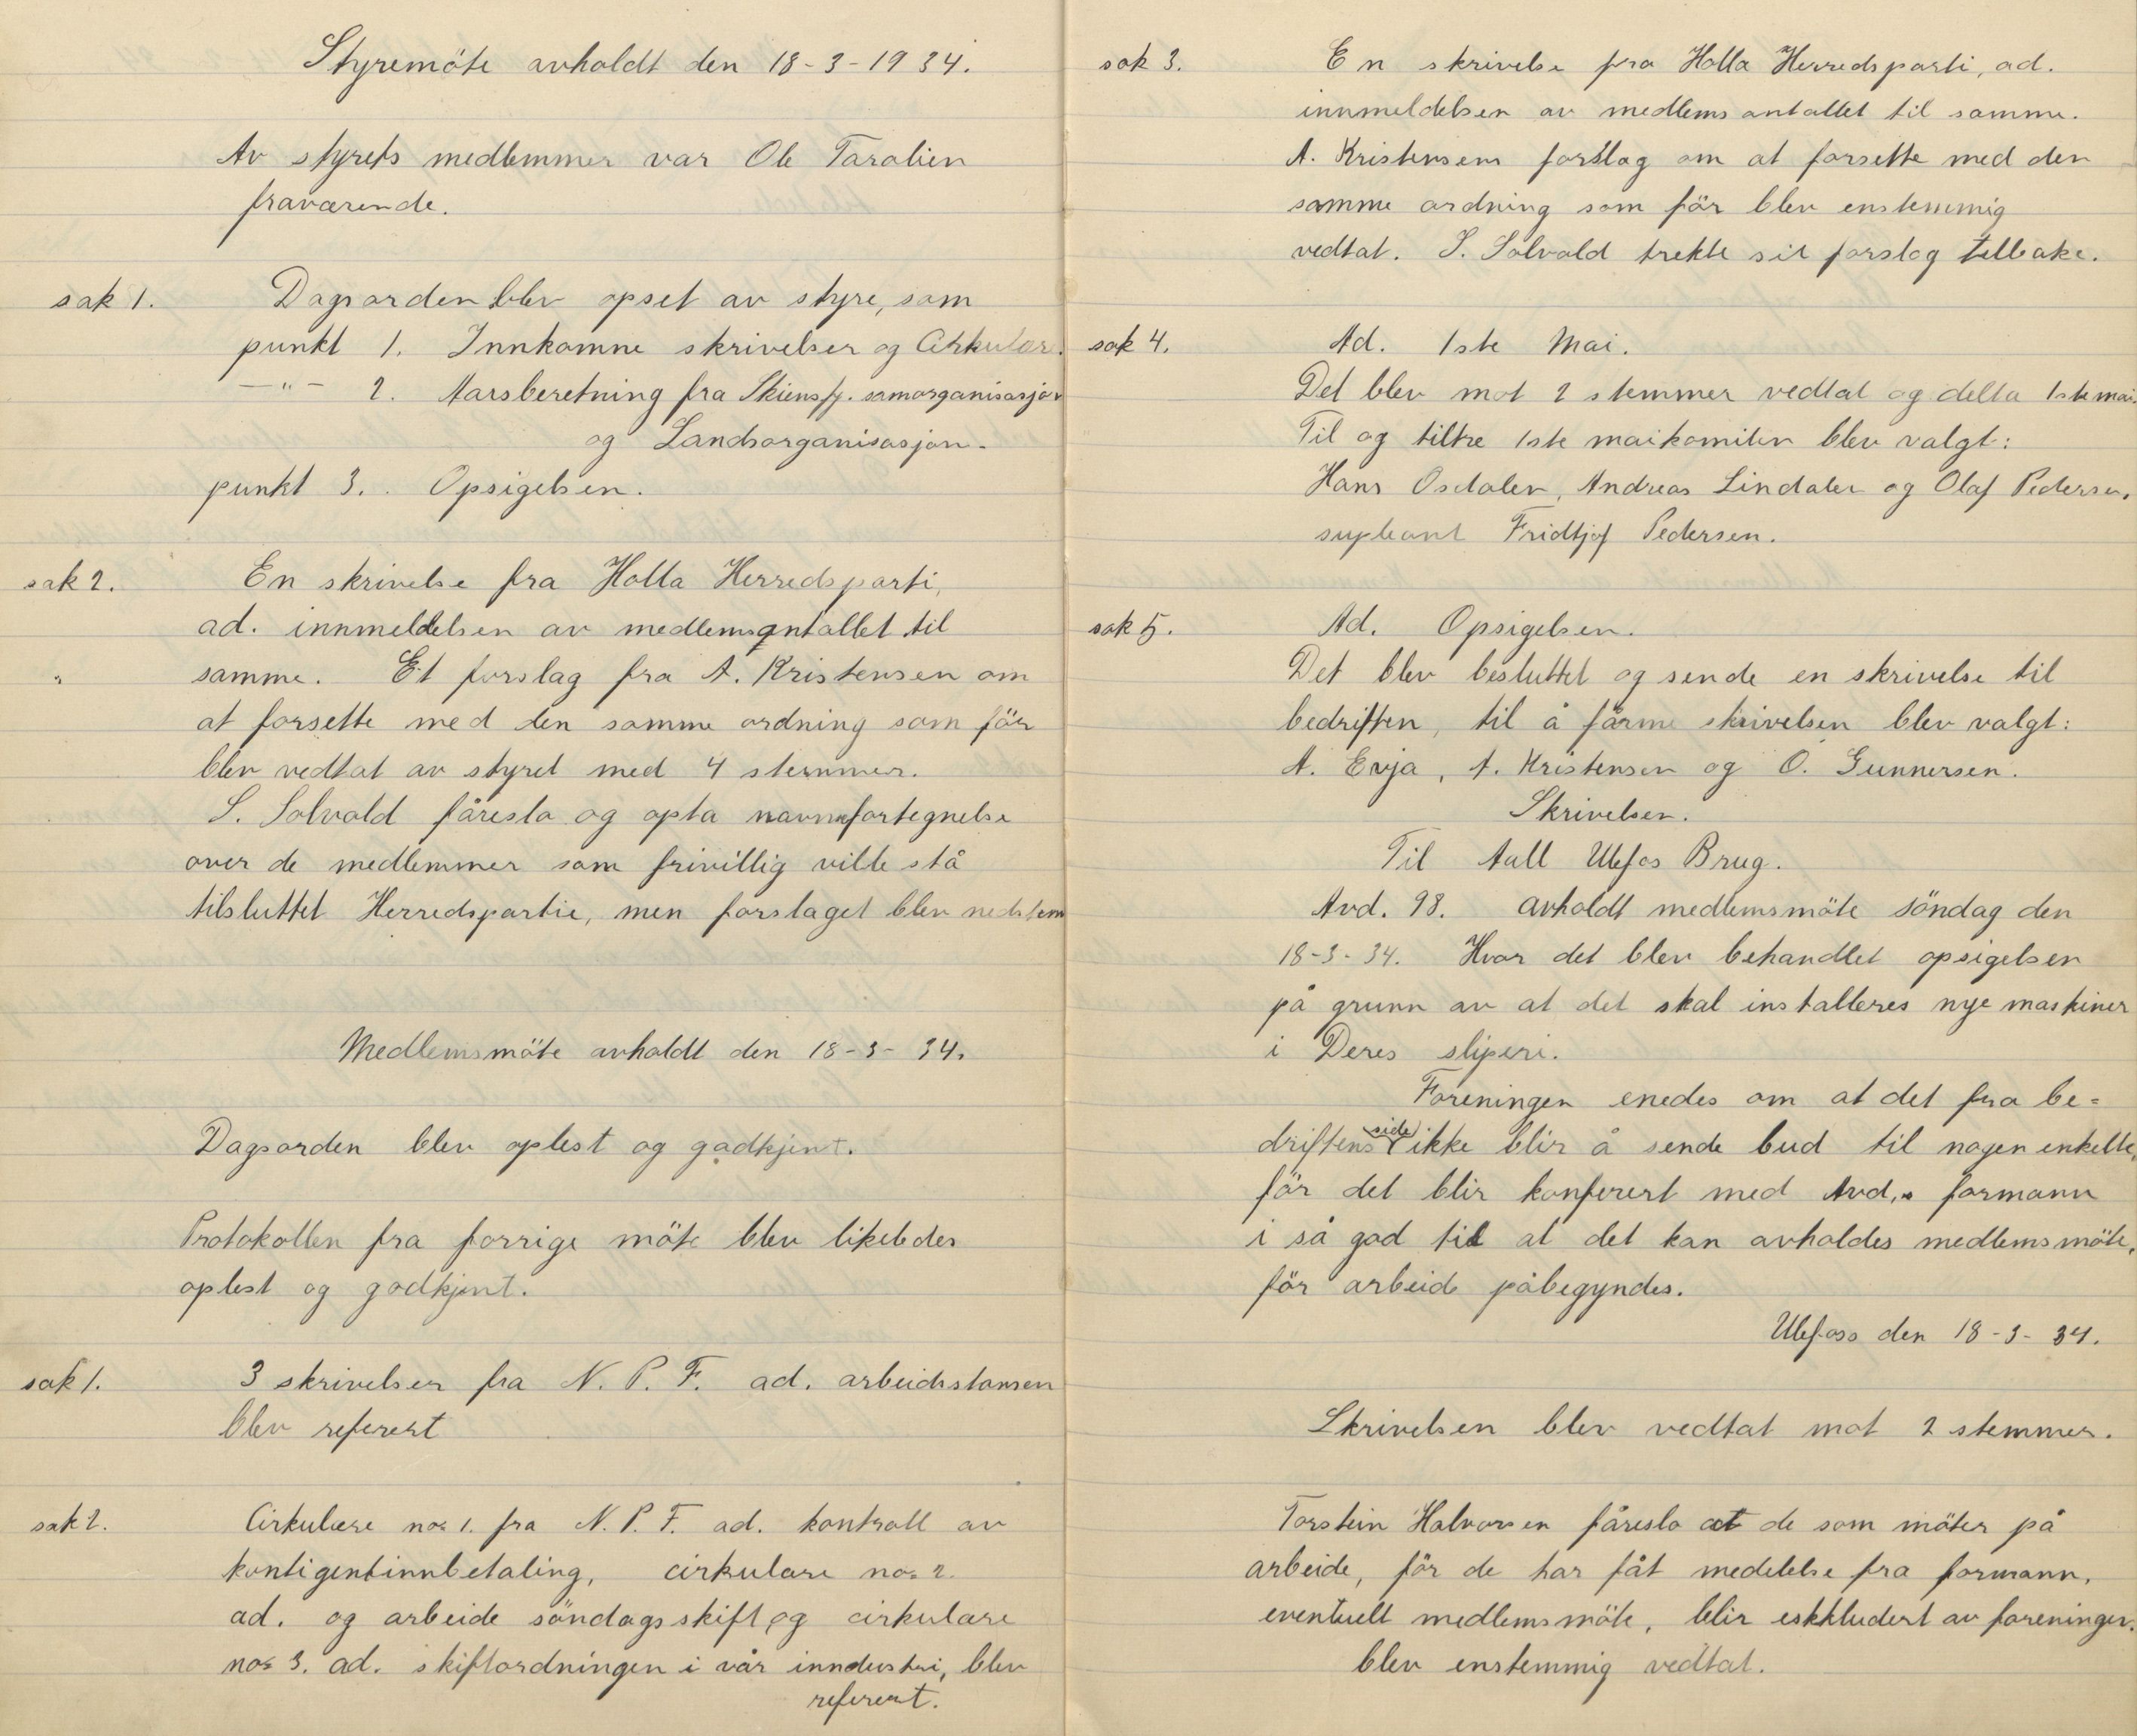 Styremöte avholdt den 18-3-1934.
Av styrets medlemmer var Ole Taralien
fraværende.
sak 1. Dagsorden blev opset av styre, som
punkt 1. Innkomne skrivelser og Cirkulære.
—"— 2. Aarsberetning fra Skiensfj. samorganisasjon
og Landsorganisasjon.
punkt 3. Opsigelsen.
sak 2. En skrivelse fra Holla Herredsparti,
ad. innmeldelsen av medlemsantallet til
samme. Et forslag fra A. Kristensen om
at forsette med den samme ordning som för
blev vedtat av styret med 4 stemmer.
S. Solvold föreslo og opta navnefortegnelse
over de medlemmer som frivillig ville stå
tilsluttet Herredspartie, men forslaget blev nedstem
Medlemsmöte avholdt den 18-3-34.
Dagsorden blev oplest og godkjent.
Protokollen fra forrige möte blev likeledes
oplest og godkjent.
sak 1. 3 skrivelser fra N. P. F. ad. arbeidsstansen
blev referert
sak 2. Cirkulære nor 1. fra N. P. F. ad. kontroll av
kontigentinnbetaling, cirkulære nor 2.
ad. og arbeide söndagsskift og cirkulære
nor 3. ad. skiftordningen i vår inndustri, blev
referert.
sak 3. En skrivelse fra Holla Herredsparti, ad.
innmeldelsen av medlemsantallet til samme.
A. Kristensens forslag om at forsette med den
samme ordning som för blev enstemmig
vedtat. S. Solvold trekte sit forslag tilbake.
sak 4. Ad. 1ste Mai.
Det blev mot 2 stemmer vedtat og delta 1ste mai.
Til og tiltre 1ste maikomiten blev valgt:
Hans Osdalen, Andreas Lindalen og Olaf Pedersen,
supleant Fridtjof Pedersen.
sak 5. Ad. Opsigelsen.
Det blev besluttet og sende en skrivelse til
bedriften, til å forme skrivelsen blev valgt:
A. Evja, A. Kristensen og O. Gunnersen.
Skrivelsen.
Til Aall Ulefos Brug.
Avd. 98. avholdt medlemsmöte söndag den
18-3-34. Hvor det blev behandlet opsigelsen
på grunn av at det skal installeres nye maskiner
i Deres sliperi.
Foreningen enedes om at det fra be=
driftens side ikke blir å sende bud til nogen enkelte,
för det blir konferert med Avd,s formann
i så god tid at det kan avholdes medlemsmöte,
för arbeide påbegyndes.
Ulefoss den 18-3-34.
Skrivelsen blev vedtat mot 2 stemmer.
Torstein Halvorsen föreslo at de som möter på
arbeide, för de har fåt medelelse fra formann,
eventuelt medlemsmöte, blir eskkludert av foreningen.
blev enstemmig vedtat.